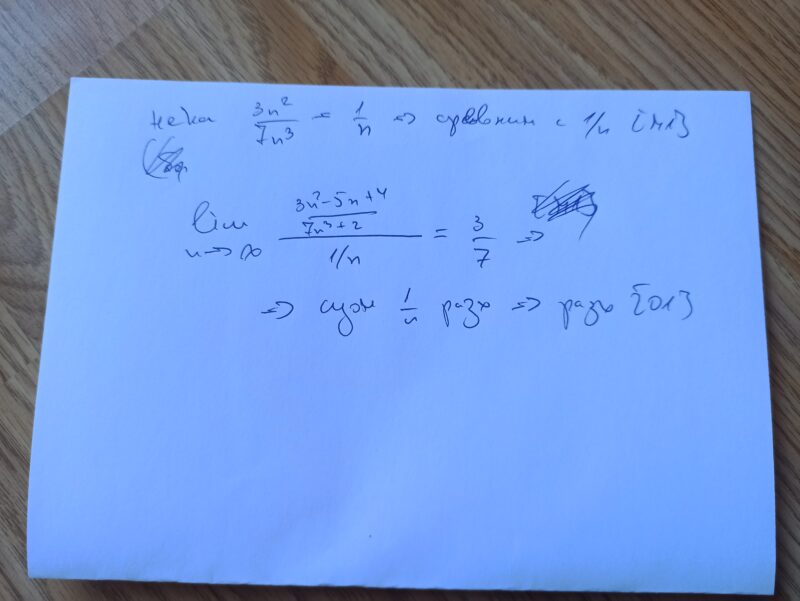 нека 3n²/7n³ = 1/n => сравним с 1/n [M1]
lim n->∞ ((3n²-5n+4)/(7n³+2))/(1/n) = 3/7 =>
=> 1/n разх => разх [O1]